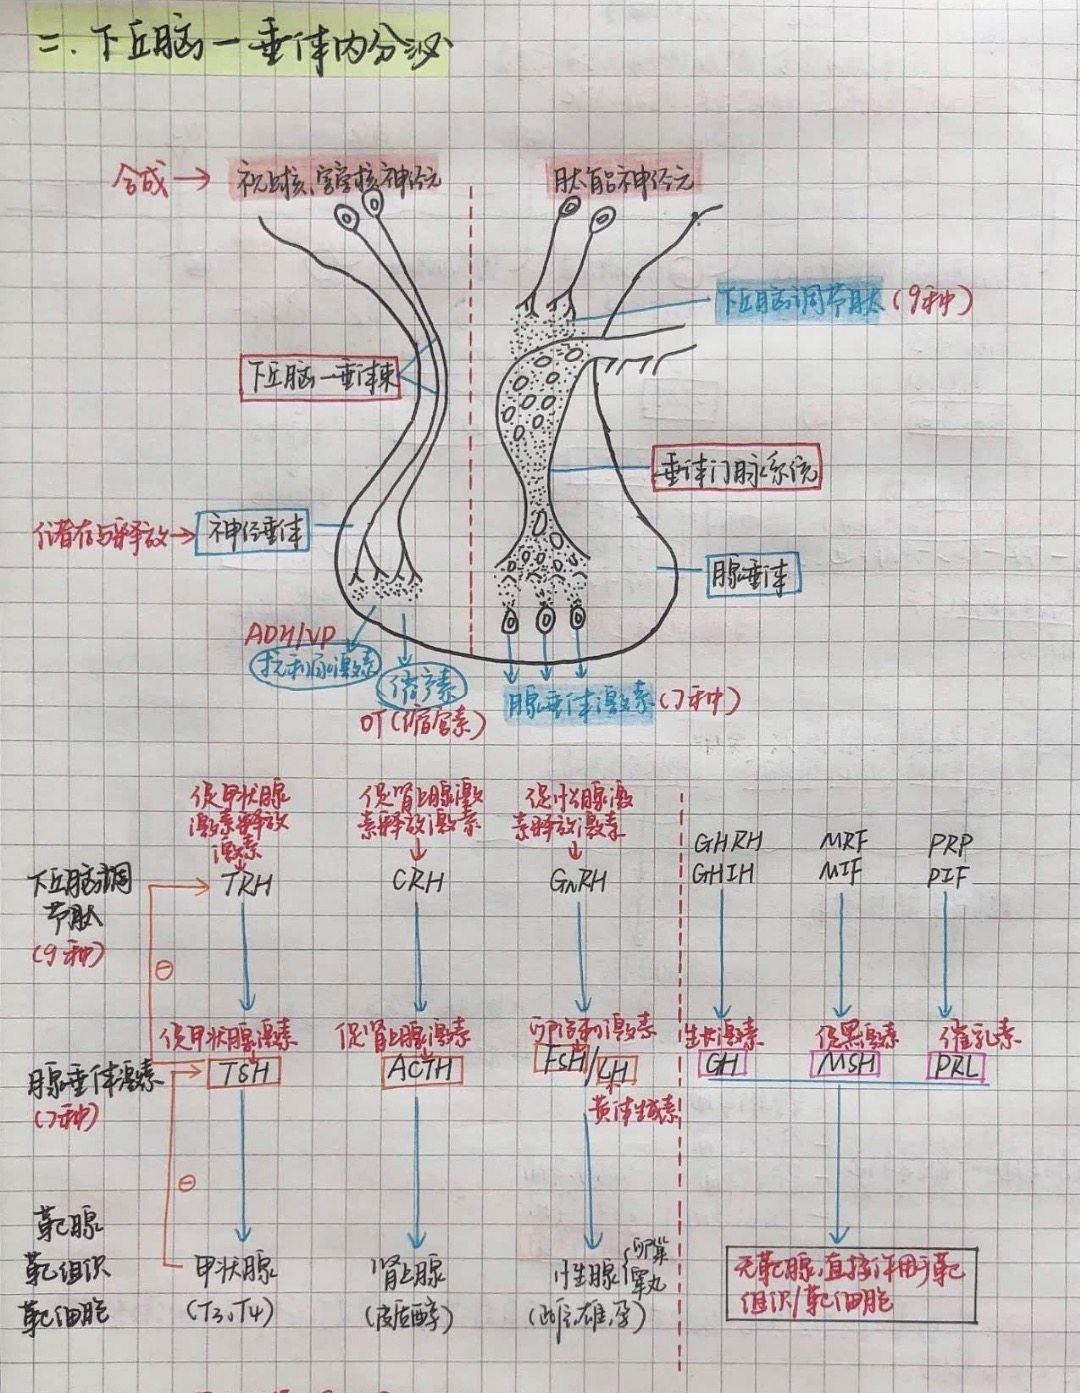 二.下丘脑一垂体内分泌
合成→ 视上核、室旁核神经元
肽能神经元
下丘脑调节肽(9种)
下丘脑一垂体束
垂体门脉系统
储存与释放→ 神经垂体
腺垂体
ADH/VP
抗利尿激素
催产素
OT(缩宫素)
腺垂体激素(7种)
促甲状腺
激素释放
激素
促肾上腺激
素释放激素
促性腺激
素释放激素
GHRH
GHIH
MRF
MIF
PRP
PIF
下丘脑调
节肽
(9种)
TRH
CRH
GnRH
⊖
促甲状腺激素
促肾上腺激素
卵泡刺激素
生长激素
促黑激素
催乳素
腺垂体激素
(7种)
TSH
ACTH
FSH/LH
GH
MSH
PRL
黄体生成素
⊖
靶腺
靶组织
靶细胞
甲状腺
(T3、T4)
肾上腺
(皮质醇)
性生腺{卵巢
睾丸
(雌,雄,孕)
无靶腺,直接作用于靶
组织/靶细胞